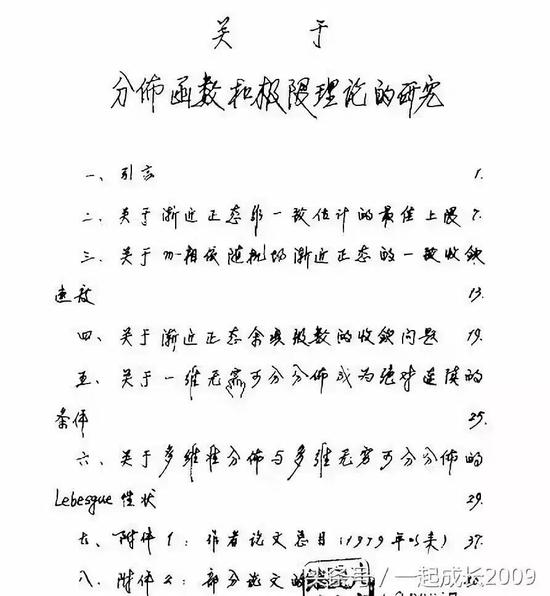 关于
分佈函数和极限理论的研究
一、引言 1.
二、关于渐近正态非一致估计的最佳上限 7.
三、关于m-相依随机场渐近正态的一致收敛
速度 13.
四、关于渐近正态余项级数的收敛问题 19.
五、关于一维无穷可分分佈成为绝对连续的
条件 25.
六、关于多维准分佈与多维无穷可分分佈的
Lebesgue性状 29.
七、附件1:作者论文总目(1979年以来) 37.
八、附件2:部分论文的
一起成长2009